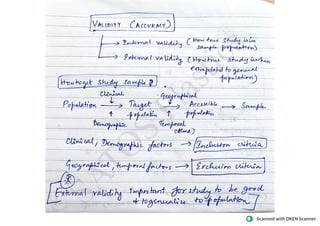 VALIDITY (ACCURACY)
Internal validity (How true study is in
sample population)
External validity (How true study is when
extrapolated to general
population)
How to get study sample?
Clinical Geographical
Population → Target → Accessible → Sample
population population
Demographic Temporal
(time)
Clinical, Demographic factors → Inclusion criteria
Geographical, temporal factors → Exclusion criteria
External validity important for study to be good
& to generalise to population
Scanned with OKEN Scanner